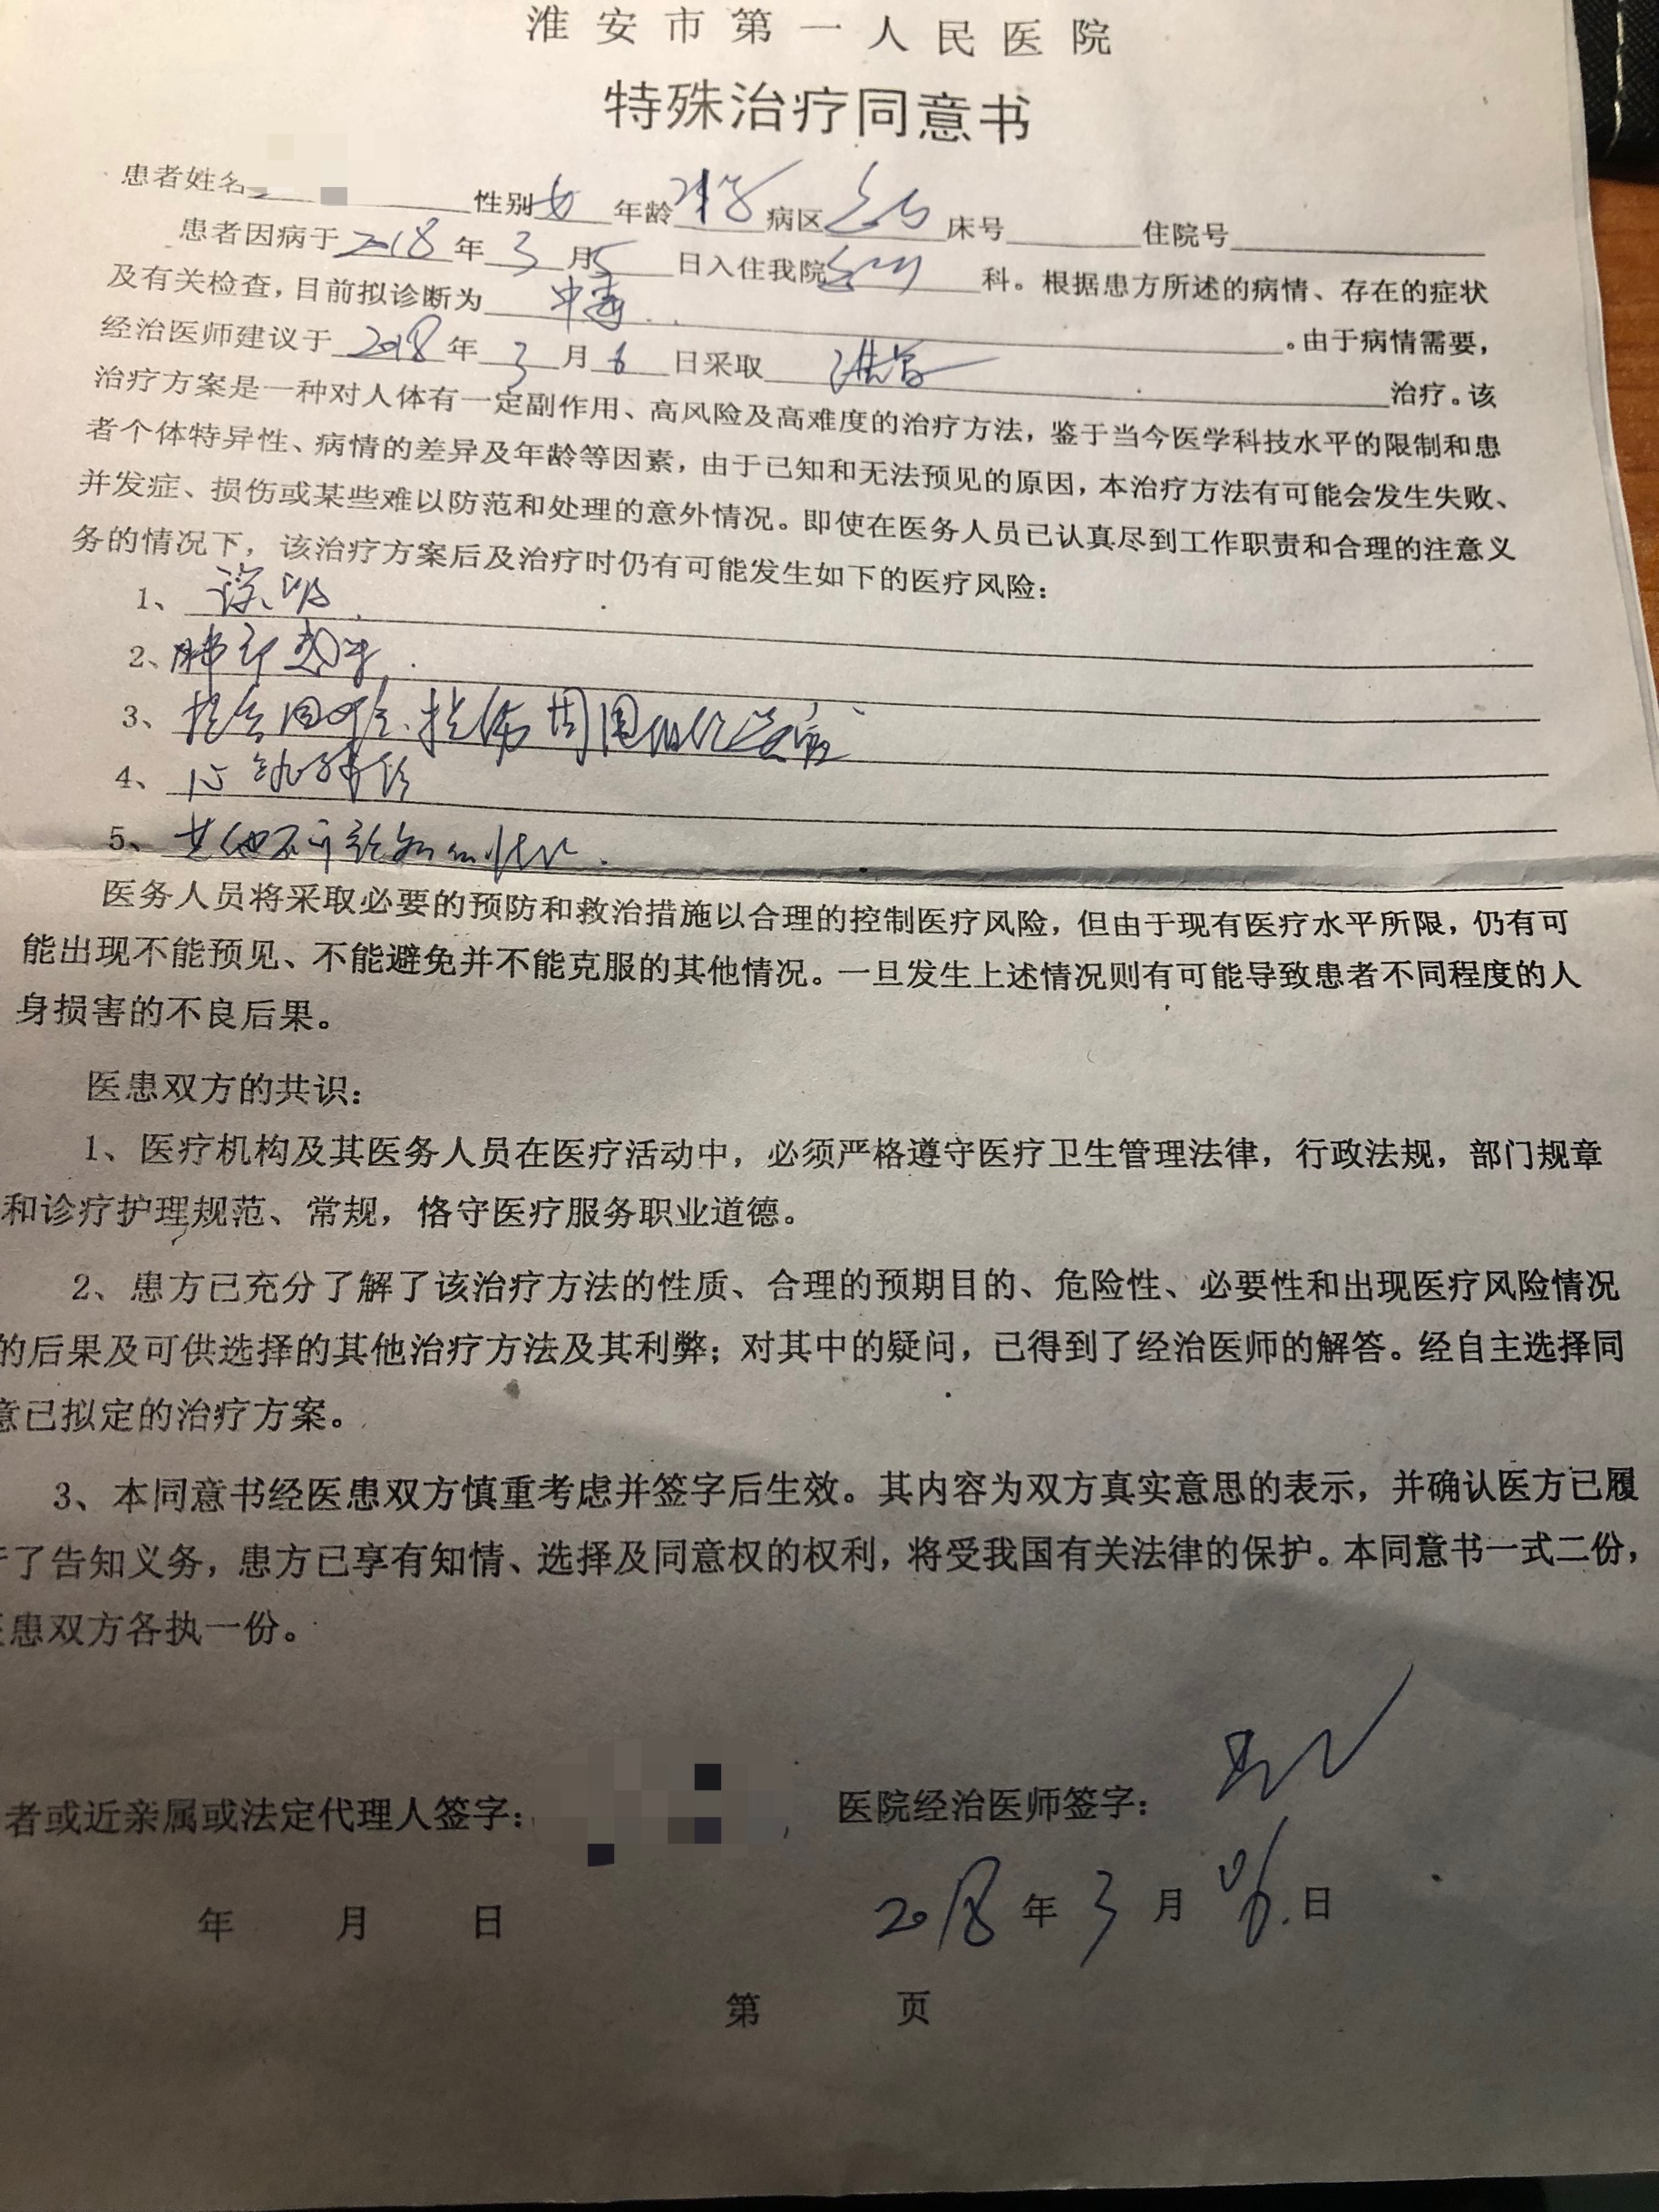 淮安市第一人民医院
特殊治疗同意书
患者姓名 性别女 年龄 病区 床号 住院号
患者因病于2018年3月5日入住我院 科。根据患方所述的病情、存在的症状
及有关检查，目前拟诊断为 中毒 。由于病情需要，
经治医师建议于2018年3月6日采取 洗胃 治疗。该
治疗方案是一种对人体有一定副作用、高风险及高难度的治疗方法，鉴于当今医学科技水平的限制和患
者个体特异性、病情的差异及年龄等因素，由于已知和无法预见的原因，本治疗方法有可能会发生失败、
并发症、损伤或某些难以防范和处理的意外情况。即使在医务人员已认真尽到工作职责和合理的注意义
务的情况下，该治疗方案后及治疗时仍有可能发生如下的医疗风险：
1、误吸
2、肺部感染
3、 周围
4、心
5、其他不可预知的情况
医务人员将采取必要的预防和救治措施以合理的控制医疗风险，但由于现有医疗水平所限，仍有可
能出现不能预见、不能避免并不能克服的其他情况。一旦发生上述情况则有可能导致患者不同程度的人
身损害的不良后果。
医患双方的共识：
1、医疗机构及其医务人员在医疗活动中，必须严格遵守医疗卫生管理法律，行政法规，部门规章
和诊疗护理规范、常规，恪守医疗服务职业道德。
2、患方已充分了解了该治疗方法的性质、合理的预期目的、危险性、必要性和出现医疗风险情况
的后果及可供选择的其他治疗方法及其利弊；对其中的疑问，已得到了经治医师的解答。经自主选择同
意已拟定的治疗方案。
3、本同意书经医患双方慎重考虑并签字后生效。其内容为双方真实意思的表示，并确认医方已履
行了告知义务，患方已享有知情、选择及同意权的权利，将受我国有关法律的保护。本同意书一式二份，
医患双方各执一份。
者或近亲属或法定代理人签字： 医院经治医师签字：
年 月 日 2018年3月6日
第 页